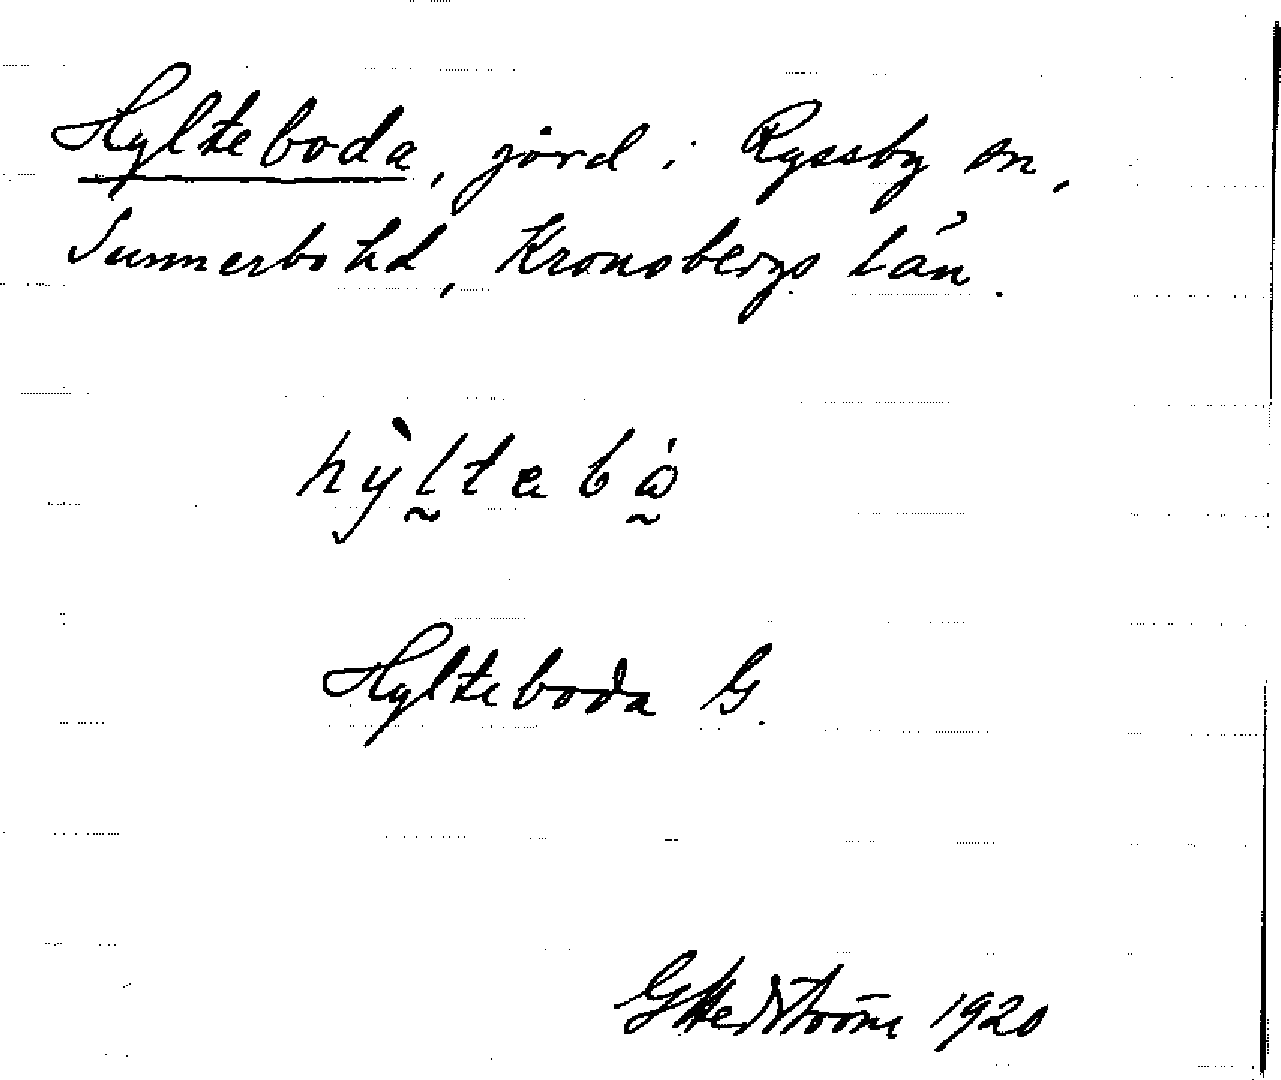 Hylteboda, jord i Ryssby sn,
Sunnerbo hd, Kronobergs län.
hỳltebå
Hylteboda G.
G Hedström 1920